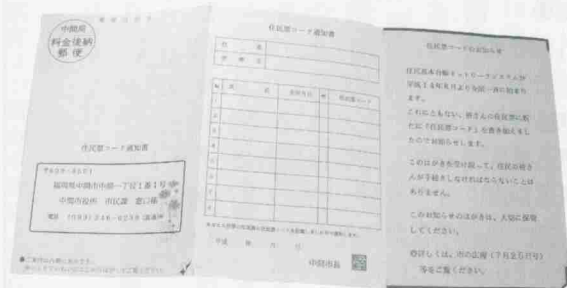 中間局
料金後納
郵便
住民票コード通知書
〒809-8501
福岡県中間市中間一丁目1番1号
中間市役所 市民課 窓口係
電話 (093)246-6239 (直通)
住民票コード通知書
住所
世帯主
氏名
生年月日
性
住民票コード
平成 年 月 日
中間市長
住民票コードのお知らせ
住民基本台帳ネットワークシステムが
平成14年8月より全国一斉に始まり
ます。
これにともない、皆さんの住民票に新
たに「住民票コード」を書き加えまし
たのでお知らせします。
このはがきを受け取って、住民の皆さ
んが手続きしなければならないことは
ありません。
このお知らせのはがきは、大切に保管
してください。
◎詳しくは、市の広報(7月25日号)
等をご覧ください。